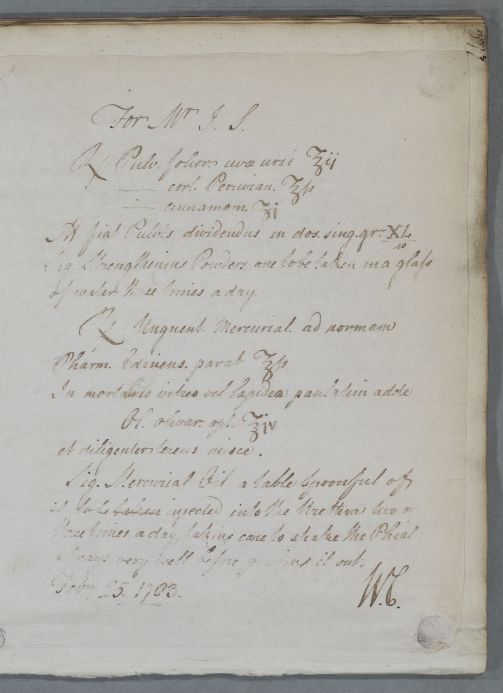 For Mr J. S.
℞ Pulv. folior. uvæ ursi ℥ij
—— cort. Peruvian. ℥ſs
—— cinnamom. ʒi
M fiat Pulvis dividendus in dos. sing. gr. XL
Sig. Strengthening Powders, one to be taken in a glaſs
of water three times a day.
℞ Unguent. Mercurial. ad normam
Pharm. Edinens. parat ℥ſs
In mortario vitreo vel lapideo paulatim adde
Ol. olivar. opt. ℥iv
et diligenter terens misce.
Sig. Mercurial Oil a table spoonful of
it to be taken injected into the Urethra two or
three times a day, taking care to shake the Phial
always very well before pouring it out.
Feby. 25. 1783.
W.C.